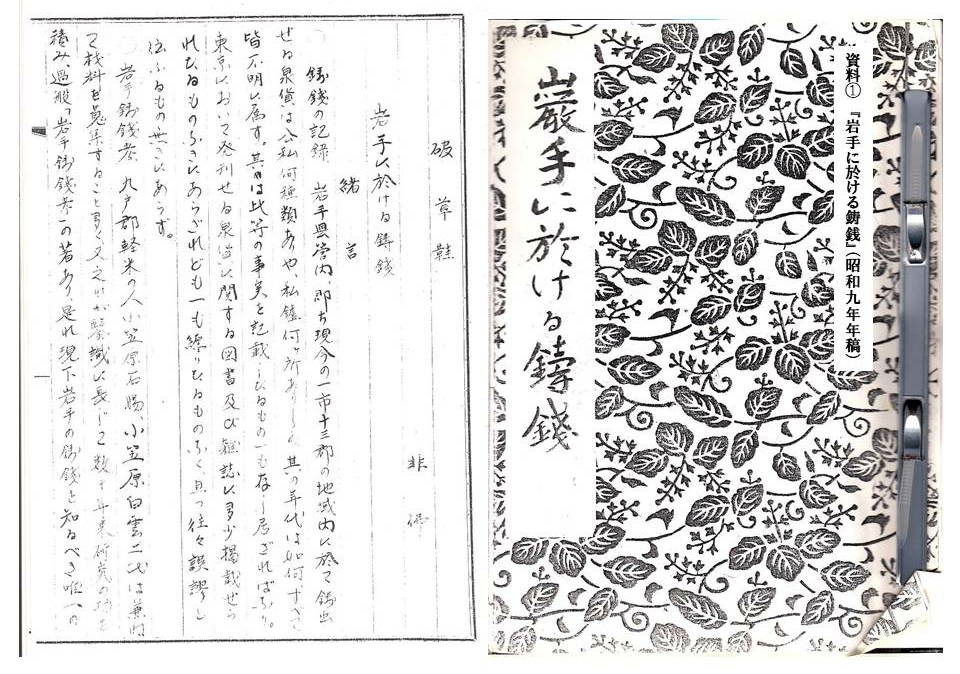 資料① 『岩手に於ける鋳銭』(昭和九年年稿)
巌手に於ける鑄錢
破草鞋
非佛
岩手に於ける鋳銭
緒言
鋳銭の記録 岩手県管内、即ち現今の一市十三郡の地域内に於て鋳出
せる泉貨は公私何種類あや、私鋳何ヶ所ありしや、其の年代は如何すべて
皆不明に属す。其は此等の事実を記載したるもの一も存し居ざればなり。
東京において発刊せる泉貨に関する図書及び雑誌に多少掲載せら
れたるものなきにあらざれども一も纏りたるものなく且つ往々誤謬を
伝ふるもの無きにあらず。
岩手鋳銭考 九戸郡軽米の人小笠原白雲二代は
て材料を蒐集すること多く又之が鑑識に長じて数十年来研究の功を
積み過般「岩手鋳銭考」の著あり、是れ現下岩手の鋳銭を知るべき唯一の